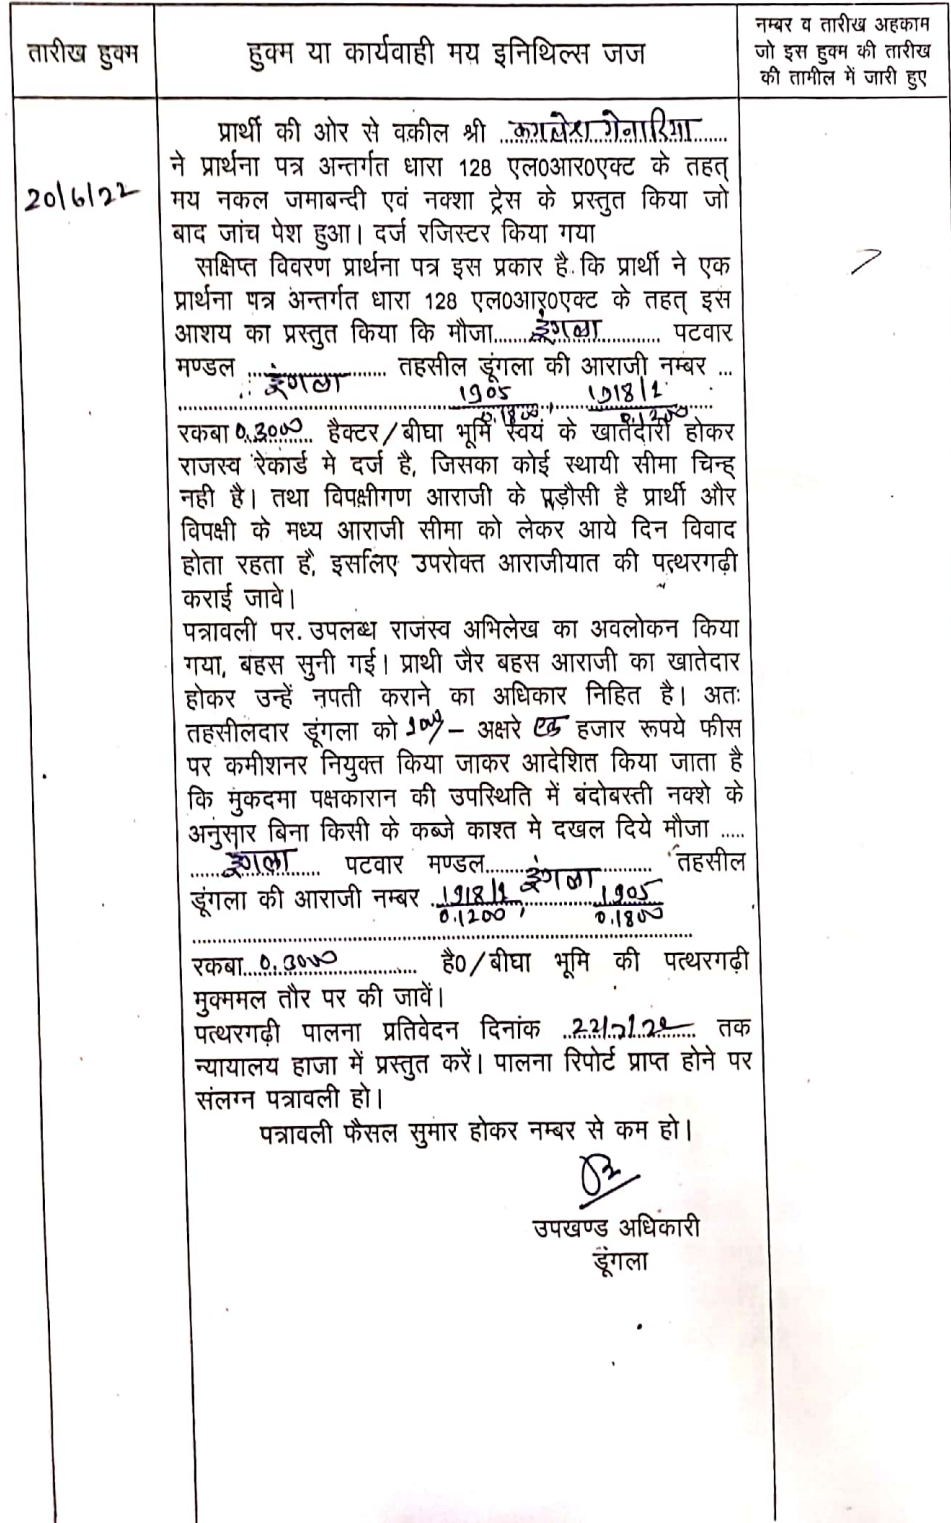 तारीख हुक्म
हुक्म या कार्यवाही मय इनिथिल्स जज
नम्बर व तारीख अहकाम
जो इस हुक्म की तारीख
की तामील में जारी हुए
20/6/22
प्रार्थी की ओर से वकील श्री ...............
ने प्रार्थना पत्र अन्तर्गत धारा 128 एल0आर0एक्ट के तहत्
मय नकल जमाबन्दी एवं नक्शा ट्रेस के प्रस्तुत किया जो
बाद जांच पेश हुआ। दर्ज रजिस्टर किया गया
सक्षिप्त विवरण प्रार्थना पत्र इस प्रकार है कि प्रार्थी ने एक
प्रार्थना पत्र अन्तर्गत धारा 128 एल0आर0एक्ट के तहत् इस
आशय का प्रस्तुत किया कि मौजा.....डूंगला.......... पटवार
मण्डल ....डूंगला.... तहसील डूंगला की आराजी नम्बर ...
1905/0.1800, 1918/1/0.1200
रकबा 0.3000 हैक्टर/बीघा भूमि स्वयं के खातेदारी होकर
राजस्व रेकार्ड मे दर्ज है, जिसका कोई स्थायी सीमा चिन्ह्
नही है। तथा विपक्षीगण आराजी के पड़ौसी है प्रार्थी और
विपक्षी के मध्य आराजी सीमा को लेकर आये दिन विवाद
होता रहता है, इसलिए उपरोक्त आराजीयात की पत्थरगढ़ी
कराई जावे।
पत्रावली पर उपलब्ध राजस्व अभिलेख का अवलोकन किया
गया, बहस सुनी गई। प्राथी जैर बहस आराजी का खातेदार
होकर उन्हें नपती कराने का अधिकार निहित है। अतः
तहसीलदार डूंगला को – अक्षरे एक हजार रूपये फीस
पर कमीशनर नियुक्त किया जाकर आदेशित किया जाता है
कि मुकदमा पक्षकारान की उपस्थिति में बंदोबस्ती नक्शे के
अनुसार बिना किसी के कब्जे काश्त मे दखल दिये मौजा .....
.....डूंगला..... पटवार मण्डल.....डूंगला..... तहसील
डूंगला की आराजी नम्बर 1918/1/0.1200, 1905/0.1800
रकबा..0.3000............ है0/बीघा भूमि की पत्थरगढ़ी
मुक्ममल तौर पर की जावें।
पत्थरगढ़ी पालना प्रतिवेदन दिनांक ..22/7/22.. तक
न्यायालय हाजा में प्रस्तुत करें। पालना रिपोर्ट प्राप्त होने पर
संलग्न पत्रावली हो।
पत्रावली फैसल सुमार होकर नम्बर से कम हो।
उपखण्ड अधिकारी
डूंगला